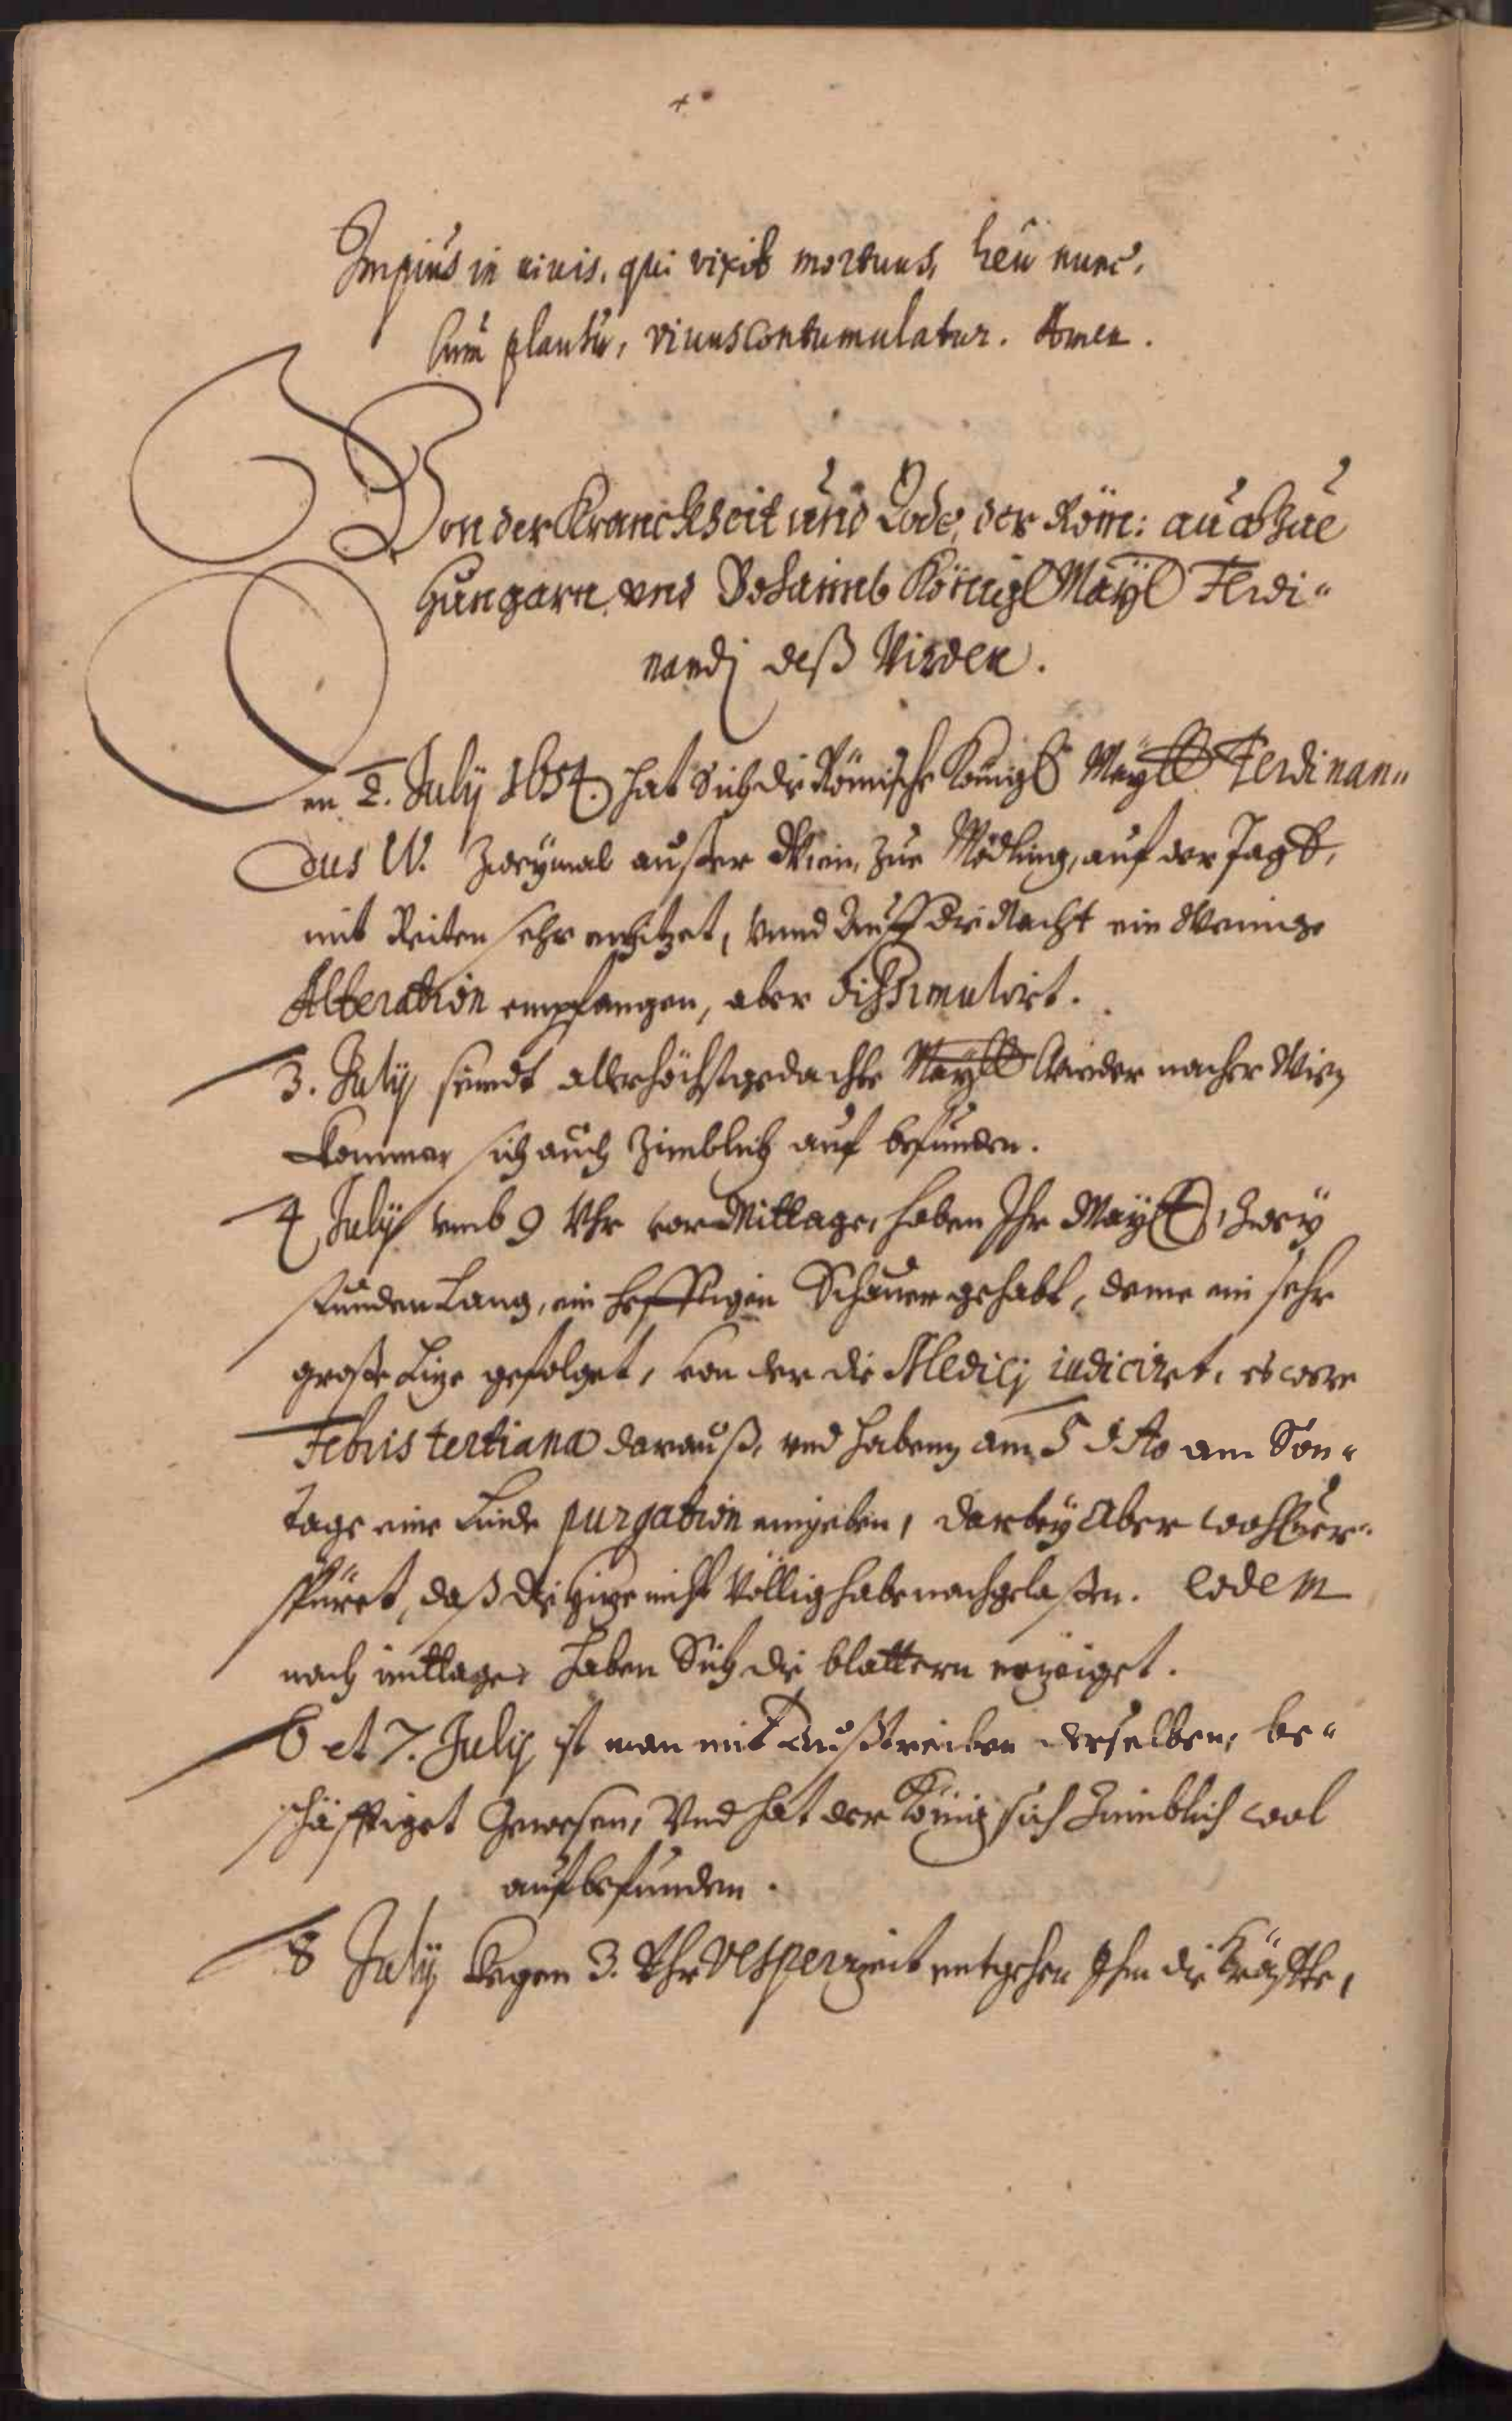 Impius in vivis, qui vixit mortuus, heu nunc,
Cum planctu, vivus contumulatur. Amen.
Von der Kranckheit und Tode, der Röm: auch Zue
Hungarn und Bohaimb Königl Mayt Ferdi-
nandj deß Virden.
Den 2. July 1654. hat Sich die Römische Königl Maytt Ferdinan-
dus IV. Zweymal außer Wien, zue Mödling, auf der Jagt,
mit Reiten sehr erhitzet, vnnd Auff die Nacht ein Wenige
Alteration empfangen, aber dissimulirt.
3. July seindt allerhöchstgedachte Maytt Wieder nacher Wien
kommen sich auch Zimblich auf befunden.
4 July vmb 9 Vhr vor Mittage, haben Ihr Maytt, Zwey
stunden Lang, ein hefftigen Schauer gehabt, deme ein sehr
große Hize gefolget, von der die Medicj iudiciret, es were
Febris tertiana darauß, vnd haben am 5 dito am Son-
tage eine Linde purgation eingeben, darbey Aber wohl ver-
spüret, daß die Hize nicht Völlig habe nachgelaßen. Eodem
nach mittage haben Sich die blattern erzeiget.
6 et 7. July ist man mit Außtreiben derselben, be-
schäfftiget Gewesen, Vnd hat der König sich Zimblich wol
auf befunden.
8 July kegen 3. Vhr Vesperzeit entgehen Ihm die Kräffte,